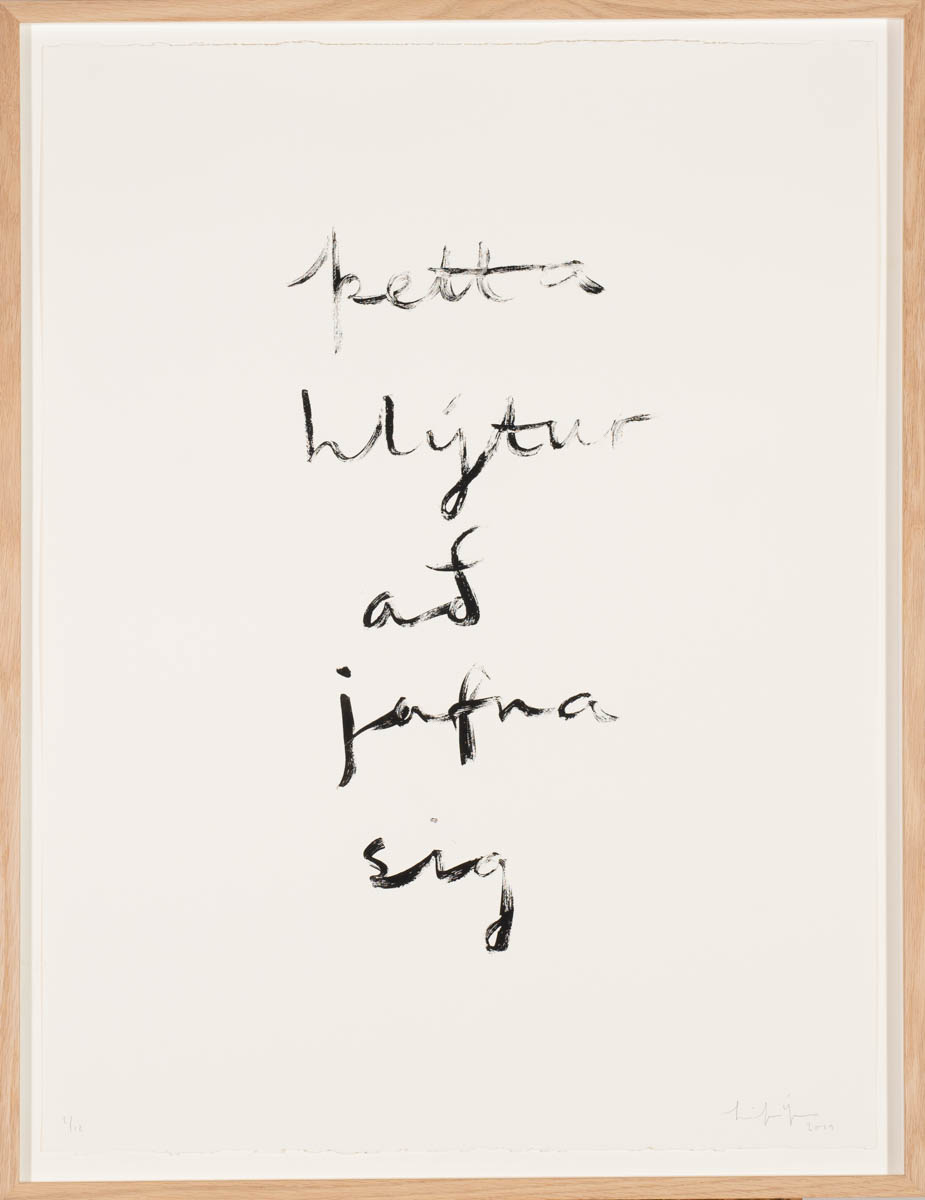 þetta
hlýtur
að
jafna
sig